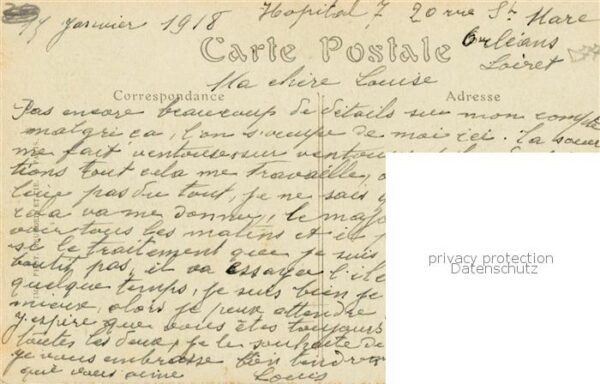 14 Janvier 1918 Hopital 7 20 rue St Marc
Orléans
Loiret
Carte Postale
Ma chère Louise
Correspondance Adresse
Pas encore beaucoup de détails sur mon compte
malgré ça, l'on s'occupe de moi ici. La soeur
me fait ventouses sur ventou
tions tout cela me travaille,
pas du tout, je ne sais
va me donner, le majo
voir tous les matins et
si le traitement que je suis
boutit pas, il va essayer
quelque temps, je suis bien je
mieux, alors je peux attendre
J'espère que vous êtes toujours
toutes les deux, je le souhaite de
je vous embrasse bien tendre
qui vous aime Louis
privacy protection
Datenschutz